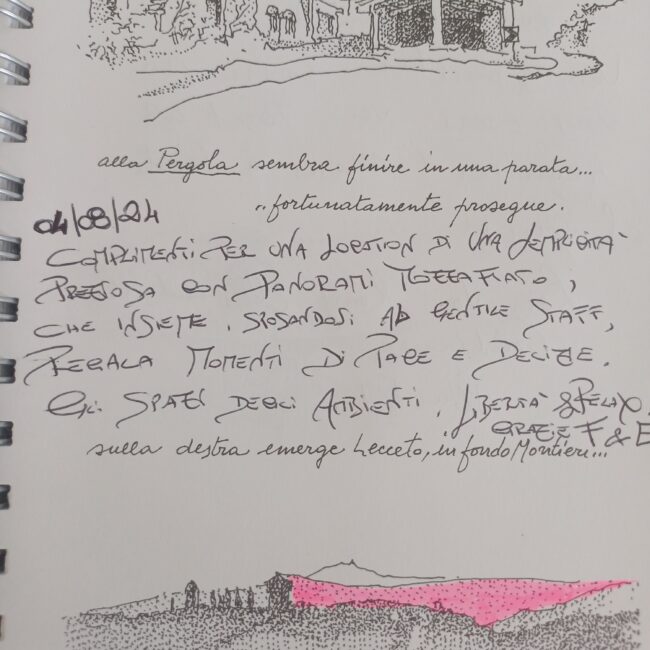 alla Pergola sembra finire in una parata...
.. fortunatamente prosegue.
04/08/24
COMPLIMENTI PER UNA LOCATION DI UNA SEMPLICITA'
PREZIOSA CON PANORAMI MOZZAFIATO,
CHE INSIEME, SPOSANDOSI AL GENTILE STAFF,
REGALA MOMENTI DI PACE E DELIZIE.
GLI SPAZI DEGLI AMBIENTI. LIBERTA' & RELAX.
GRAZIE F & E
sulla destra emerge Lecceto, in fondo Montieri...